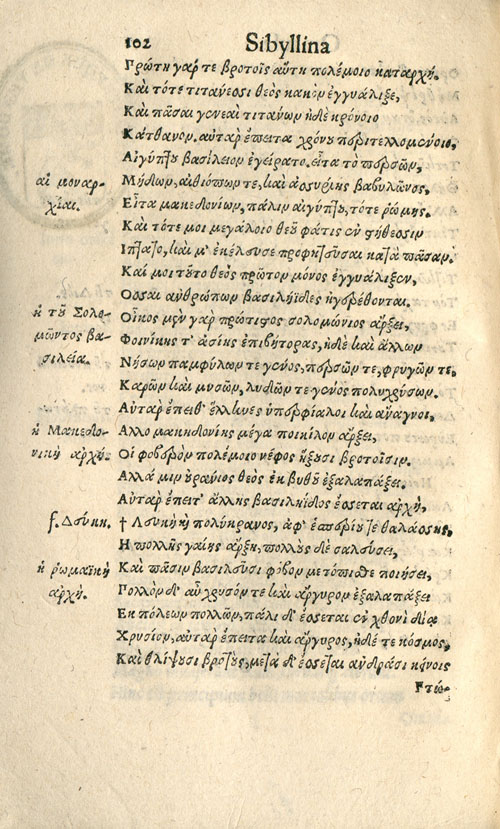 102 Sibyllina
Πρώτη γάρ τε βροτοῖς αὕτη πολέμοιο καταρχή.
Καὶ τότε τιτάνεσσι θεὸς κακὸν ἐγγυάλιξε,
Καὶ πᾶσαι γενεαὶ τιτάνων ἠδὲ κρόνοιο
Κάτθανον. αὐτὰρ ἔπειτα χρόνου περιτελλομένοιο,
Αἰγύπτου βασίλειον ἐγείρατο. εἶτα τὸ περσῶν,
αἱ μοναρ- Μήδων, αἰθιόπων τε, καὶ ἀσσυρίης βαβυλῶνος,
χίαι. Εἶτα μακεδονίων, πάλιν αἰγύπτου, τότε ῥώμης.
Καὶ τότε μοι μεγάλοιο θεοῦ φάτις ἐν στήθεσσιν
Ἵπτατο, καὶ μ' ἐκέλευσε προφητεῦσαι κατὰ πᾶσαν
Καί μοι τοῦτο θεὸς πρῶτον μόνος ἐγγυάλιξεν,
Ὅσσαι ἀνθρώπων βασιληΐδες ἠγερέθονται.
ἡ τοῦ Σολο- Οἶκος μὲν γὰρ πρώτιστος σολομώνιος ἄρξει,
μῶντος βα- Φοινίκης τ' ἀσίης ἐπιβήτορας, ἠδὲ καὶ ἄλλων
σιλεία. Νήσων παμφύλων τε γένος, περσῶν τε, φρυγῶν τε,
Καρῶν καὶ μυσῶν, λυδῶν τε γένος πολυχρύσων.
Αὐτὰρ ἔπειθ' ἕλληνες ὑπερφίαλοι καὶ ἄναγνοι,
ἡ Μακεδο- Ἄλλο μακηδονίης μέγα ποικίλον ἄρξει,
νικὴ ἀρχή. Οἳ φοβερὸν πολέμοιο νέφος ἥξουσι βροτοῖσιν.
Ἀλλά μιν οὐράνιος θεὸς ἐκ βυθοῦ ἐξαλαπάξει.
Αὐτὰρ ἔπειτ' ἄλλης βασιληΐδος ἔσσεται ἀρχὴ,
f. Λεύκη. † Λευκὴ ἢ πολύκρανος, ἀφ' ἑσπερίου τε θαλάσσης,
Ἡ πολλῆς γαίης ἄρξη, πολλοὺς δὲ σαλεύσει,
ἡ ῥωμαϊκὴ Καὶ πᾶσιν βασιλεῦσι φόβον μετόπισθε ποιήσει,
ἀρχή. Πολλὸν δ' αὖ χρυσόν τε καὶ ἄργυρον ἐξαλαπάξει
Ἐκ πόλεων πολλῶν, πάλι δ' ἔσσεται ἐν χθονὶ δίᾳ
Χρυσίον, αὐτὰρ ἔπειτα καὶ ἄργυρος, ἠδέ τε κόσμος,
Καὶ θλίψουσι βροτοὺς, μετὰ δ' ἔσσεται ἀνδράσι κείνοις
Πτώ-